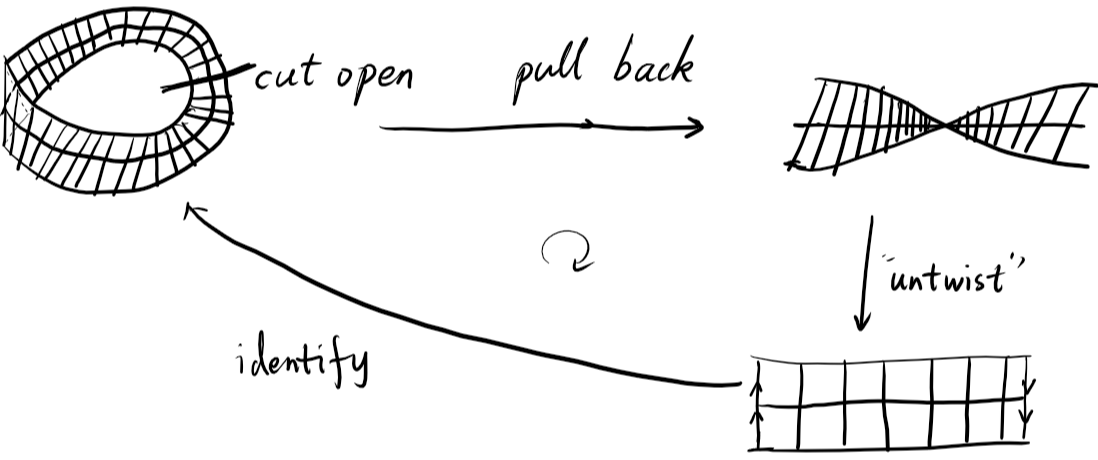 cut open
pull back
"untwist"
identify